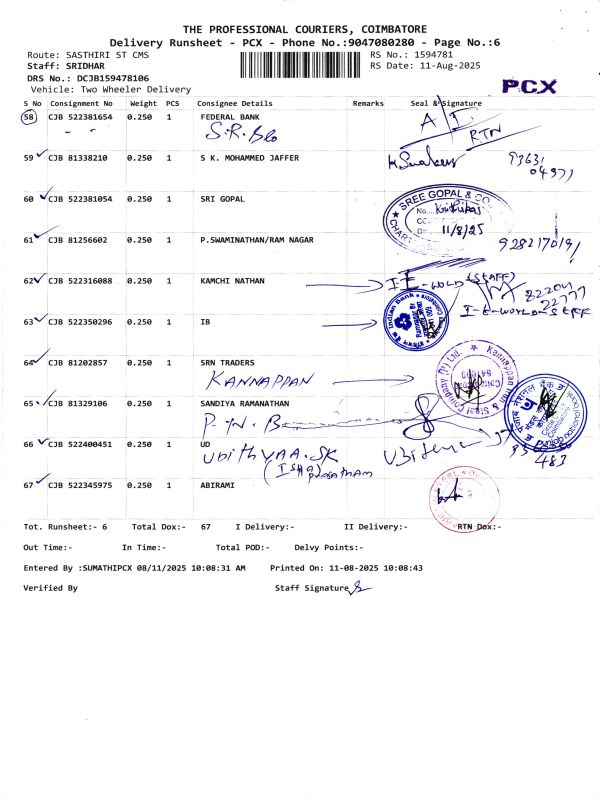 THE PROFESSIONAL COURIERS, COIMBATORE
Delivery Runsheet - PCX - Phone No.:9047080280 - Page No.:6
Route: SASTHIRI ST CMS
RS No.: 1594781
Staff: SRIDHAR
RS Date: 11-Aug-2025
DRS No.: DCJB159478106
PCX
Vehicle: Two Wheeler Delivery
S No Consignment No Weight PCS Consignee Details Remarks Seal & Signature
58 CJB 522381654 0.250 1 FEDERAL BANK
S.R.Blo
RTN
59 CJB 81338210 0.250 1 S K. MOHAMMED JAFFER
93631
04971
60 CJB 522381054 0.250 1 SRI GOPAL
SREE GOPAL & CO.
11/8/25
61 CJB 81256602 0.250 1 P.SWAMINATHAN/RAM NAGAR
62 CJB 522316088 0.250 1 KAMCHI NATHAN
I-E-WOLD (STAFF)
63 CJB 522350296 0.250 1 IB
Indian Bank
I-E-WORLD-STFF
64 CJB 81202857 0.250 1 SRN TRADERS
KANNAPPAN
Kannappan Iron & Steel Company (P) Ltd.
65 CJB 81329106 0.250 1 SANDIYA RAMANATHAN
66 CJB 522400451 0.250 1 UD
UDITHYAA.SK
483
67 CJB 522345975 0.250 1 ABIRAMI
Tot. Runsheet:- 6 Total Dox:- 67 I Delivery:- II Delivery:- RTN Dox:-
Out Time:- In Time:- Total POD:- Delvy Points:-
Entered By :SUMATHIPCX 08/11/2025 10:08:31 AM Printed On: 11-08-2025 10:08:43
Verified By Staff Signature